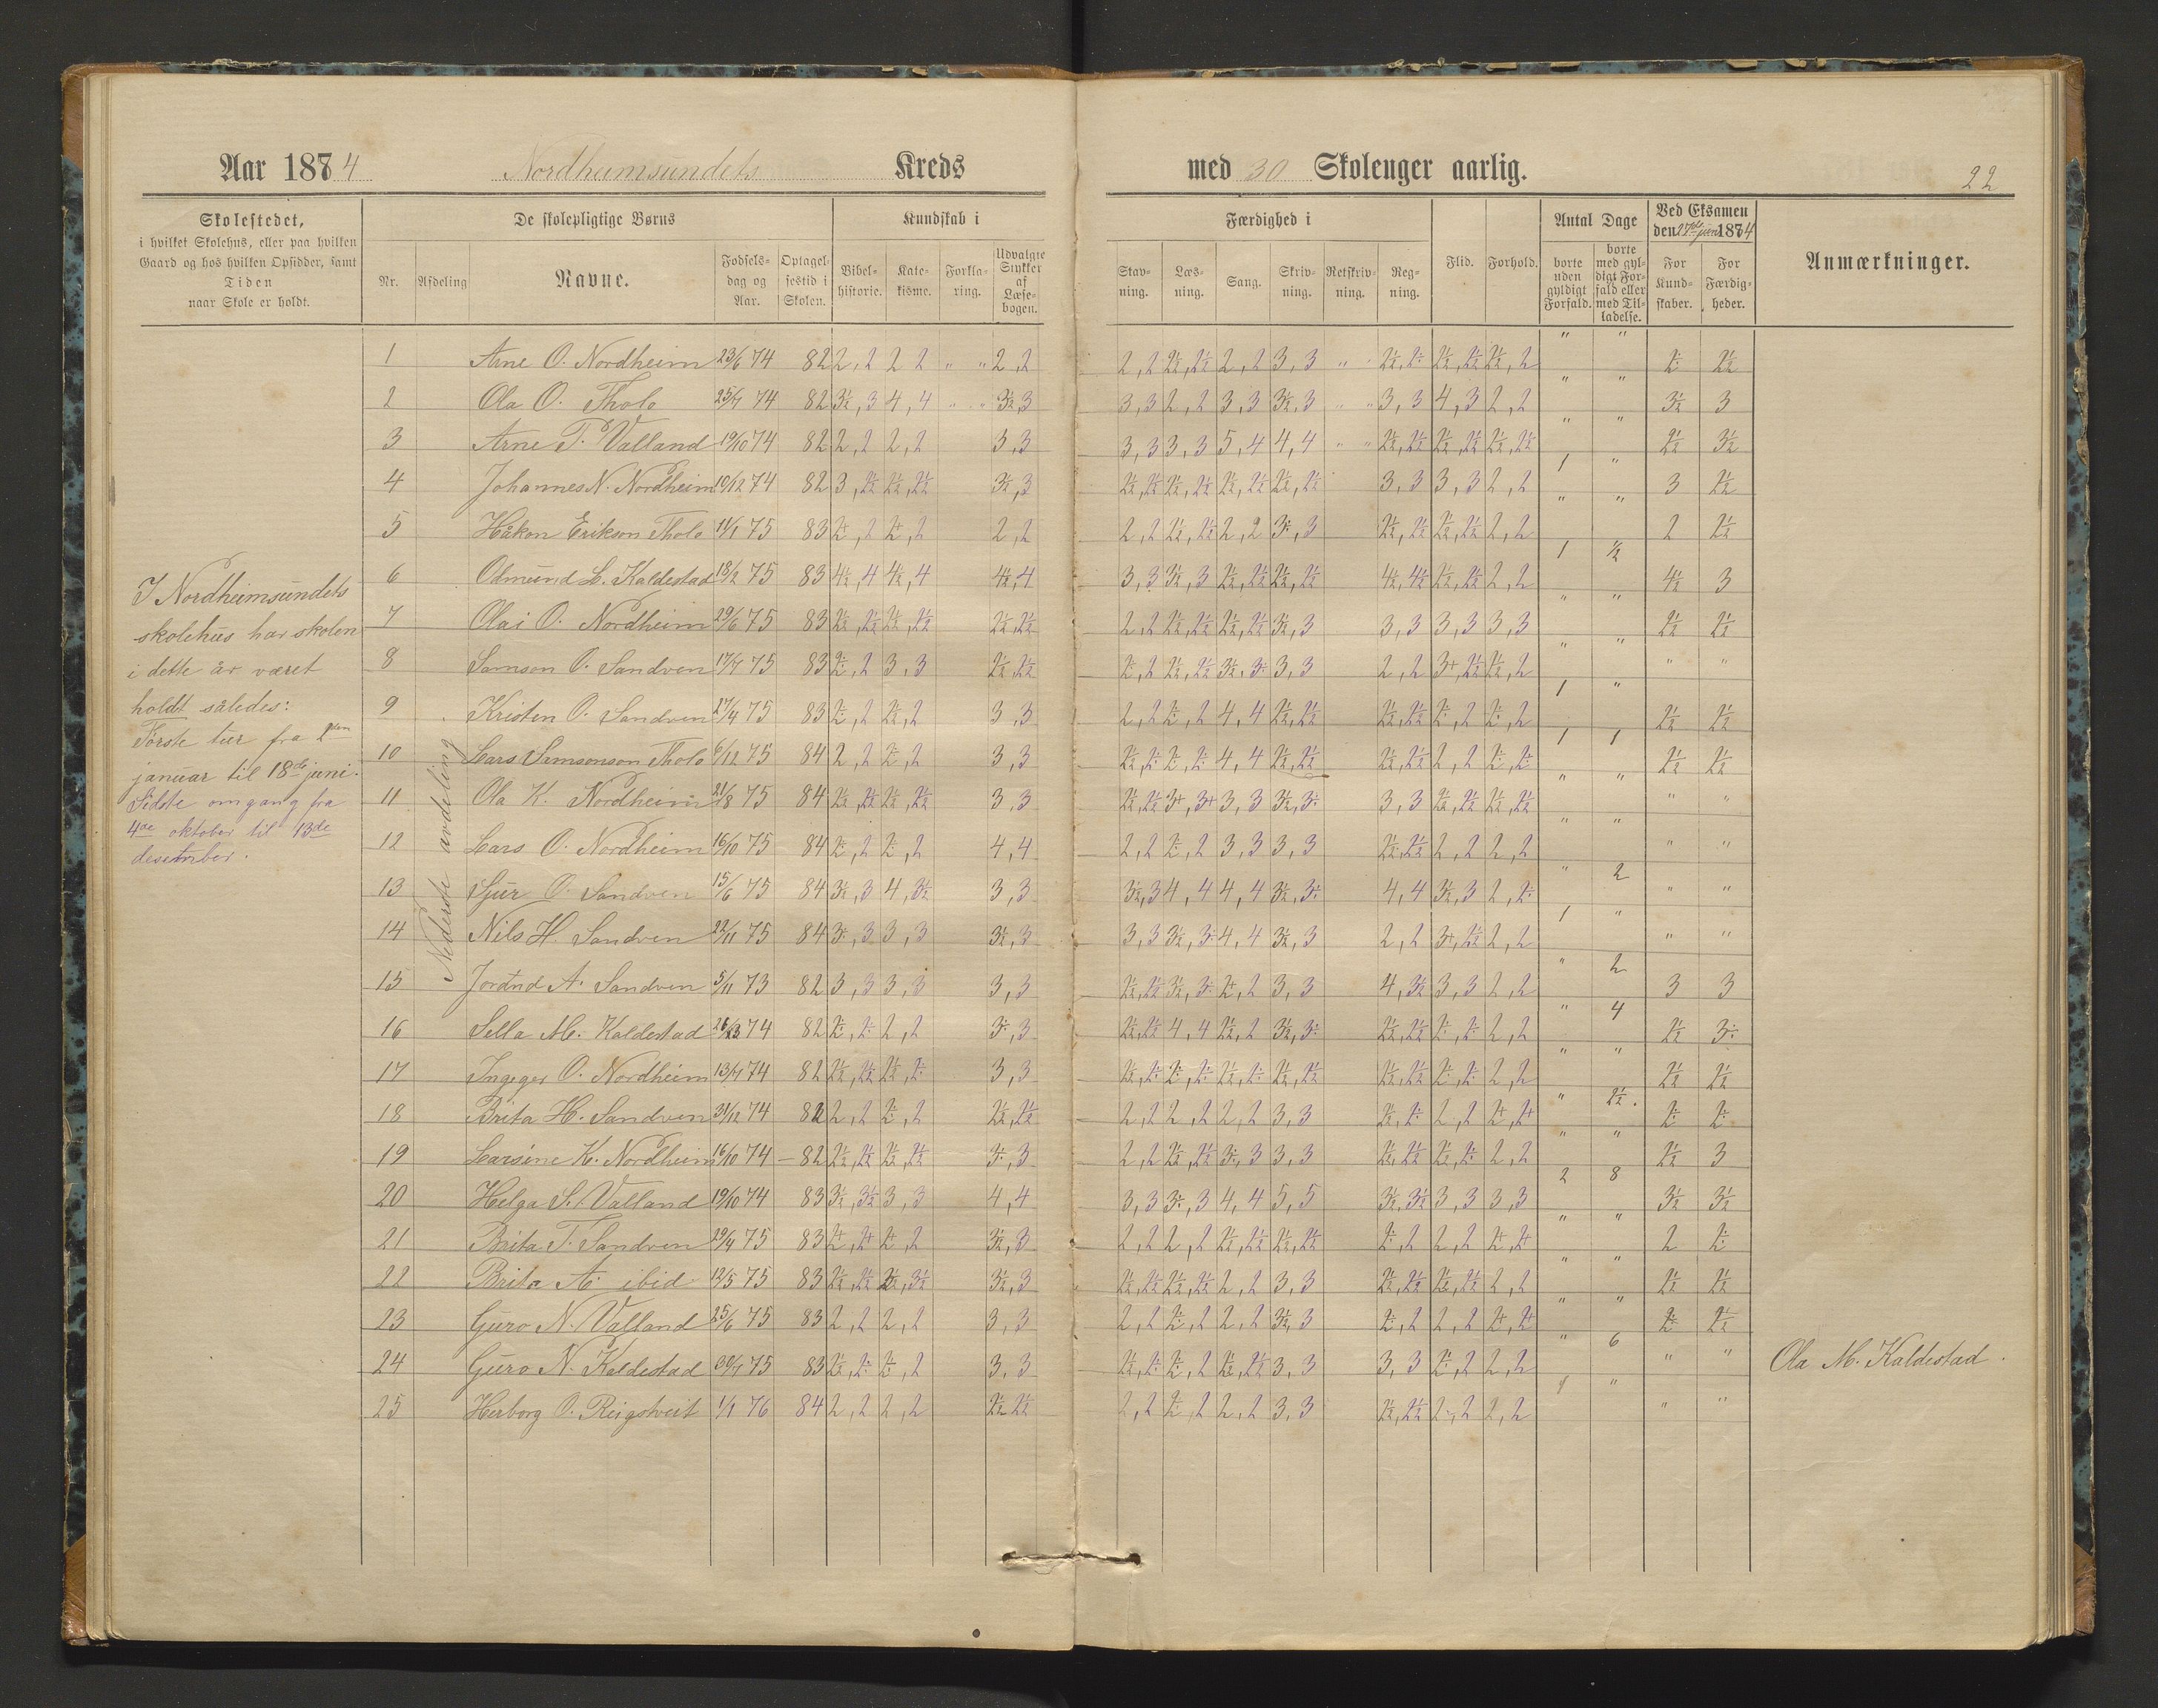 Aar 1874 Nordheimsundets Kreds
med 30 Skoleuger aarlig.
22
Skolestedet,
i hvilket Skolehus, eller paa hvilken
Gaard og hos hvilken Opsidder, samt
Tiden
naar Skole er holdt.
De skolepligtige Børns
Nr. Afdeling Navne. Fødselsdag og Aar. Optagelsestid i Skolen.
Kundskab i
Bibelhistorie. Katekisme. Forklaring. Udvalgte Stykker af Læsebogen.
Færdighed i
Stavning. Læsning. Sang. Skrivning. Retskrivning. Regning.
Flid. Forhold.
Antal Dage
borte uden gyldigt Forfald. borte med gyldigt Forfald eller med Tilladelse.
Ved Eksamen
den 17de juni 1874
For Kundskaber. For Færdigheder.
Anmærkninger.
I Nordheimsundets
skolehus har skolen
i dette år været
holdt således:
Første tur fra 2den
januar til 18de juni.
Sidste omgang fra
4de oktober til 13de
desember.
Nederste avdeling
1 Arne O. Nordheim 23/6 74 82 2, 2 2 2 " " 2, 2
2 Ola O. Tholo 25/7 74 82 3½, 3 4, 4 " " 3½, 3
3 Arne T. Valland 19/10 74 82 2, 2 2, 2 3, 3
4 Johannes N. Nordheim 10/12 74 82 3, 2½ 2½, 2½ 3½, 3
5 Håkon Erikson Tholo 11/1 75 83 2+, 2 2+, 2 2, 2
6 Odmund L. Kaldestad 18/2 75 83 4½, 4 4½, 4 4½, 4
7 Olai O. Nordheim 29/6 75 83 2½, 2½ 2½, 2½ 2½, 2½
8 Samson O. Sandven 17/7 75 83 2-, 2 3, 3 2½, 2½
9 Kristen O. Sandven 27/4 75 83 2-, 2 2½, 2 3, 3
10 Lars Samsonson Tholo 6/12 75 84 2, 2 2-, 2 3, 3
11 Ola K. Nordheim 21/8 75 84 2½, 2½ 2½, 2½ 3, 3
12 Lars O. Nordheim 16/10 75 84 2-, 2 2-, 2 4, 4
13 Sjur O. Sandven 15/6 75 84 3½, 3 4, 3½ 3, 3
14 Nils H. Sandven 22/11 75 84 3-, 3 3, 3 3½, 3
15 Jordnd A. Sandven 5/11 73 82 3, 3 3, 3 3, 3
16 Sella M. Kaldestad 74 82 2-, 2- 2, 2 3-, 3
17 Ingeger O. Nordheim 13/7 74 82 2½, 2½ 2½, 2- 3, 3
18 Brita H. Sandven 31/12 74 82 2, 2 2-, 2 2½, 2½
19 Larsine K. Nordheim 16/10 74 - 82 2½, 2½ 2½, 2½ 3-, 3
20 Helga S. Valland 19/10 74 83 3½, 3½ 3, 3 4, 4
21 Brita T. Sandven 29/4 75 83 2+, 2+ 2+, 2 3½, 3
22 Brita A. ibid 12/5 75 83 2½, 2½ 3½ 3½, 3
23 Guro N. Valland 25/6 75 83 2, 2 2, 2 3, 3
24 Guro N. Kaldestad 30/7 75 83 2½, 2- 2-, 2 3, 3
25 Herborg O. Reigstveit 1/1 76 84 2, 2 2, 2 2½ 2½
2, 2 2½, 2½ 2, 2 3, 3 " " 2½, 2- 2½, 2½ 2½, 2 " " 2- 2½
3, 3 2, 2 3, 3 3½, 3 " " 3, 3 4, 3 2, 2 " " 3½ 3
3, 3 3, 3 5, 4 4, 4 " " 2½, 2½ 2½, 2½ 2½, 2½ " " 2½ 3½
2½, 2½ 2½, 2½ 2½, 2½ 2½, 2½ 3, 3 3, 3 2, 2 1 " 3 2½
2, 2 2½, 2½ 2, 2 3-, 3 2½, 2½ 2½, 2½ 2, 2 " " 2 2½
3, 3 3½, 3 2½, 2½ 2½, 2½ 4½, 4½ 2½, 2½ 2, 2 1 ½ 4½ 3
2, 2 2½, 2½ 2½, 2½ 3½, 3 3, 3 3, 3 3, 3 " " 2½ 2½
2-, 2 2½, 2½ 3½, 3- 3, 3 2, 2 3+, 2½ 2½, 2 " " " "
2, 2 2-, 2 4, 4 2½, 2½ 2½, 2½ 2-, 2 2-, 2 1 " 2½ 2½
2½, 2- 2-, 2- 4, 4 2½, 2½ 2½, 2½ 2, 2 2-, 2- 1 1 2½ 2½
2½, 2½ 3+, 3+ 3, 3 3½, 3- 3, 3 2½, 2½ 2½, 2½ " " " "
2, 2 2-, 2 3, 3 3, 3 2½, 2½ 2, 2 2, 2 " " " "
3½, 3 4, 4 4, 4 3½, 3- 4, 4 3½, 3 2, 2- " 2 " "
3, 3 3½, 3- 4, 4 3½, 3 2, 2 3+, 2½ 2, 2 1 " " "
2½, 2½ 3½, 3- 2+, 2 3, 3 4, 3½ 3, 3 2, 2 " 2 3 3
2½, 2½ 4, 4 2½, 2 3½, 3- 2½, 2½ 2-, 2- 2, 2 " 4 2½ 3-
2½, 2- 2-, 2- 2½, 2- 2½, 2½ 2½, 2½ 2-, 2- 2, 2 " " 2½ 2½
2, 2 2, 2 2, 2 3, 3 2½, 2- 2, 2 2+, 2+ " 2½. 2- 2-
2, 2 2½, 2½ 3-, 3 3, 3 2½, 2½ 2½, 2- 2, 2 " " 2½ 3
3, 3 3-, 3 4, 4 5, 5 3½, 3½ 3, 3 3, 3 2 8 3½ 3½
2, 2 2, 2 2½, 2½ 2½, 2½ 2-, 2 2, 2 2+, 2+ " " 2 2-
2½, 2½ 2½, 2½ 2, 2 3, 3 2½, 2½ 2½, 2½ 2, 2 " " 2½ 2½
2, 2 2-, 2 2, 2 3½, 3 2-, 2 2, 2 2+, 2+ " " 2- 2½
2½, 2- 2-, 2 2½, 2½ 3, 3 3, 3 2-, 2 2, 2 " 6 " " Ola M. Kaldestad.
2, 2 2-, 2 2, 2 3, 3 2½, 2½ 2-, 2 2, 2 1 " " "